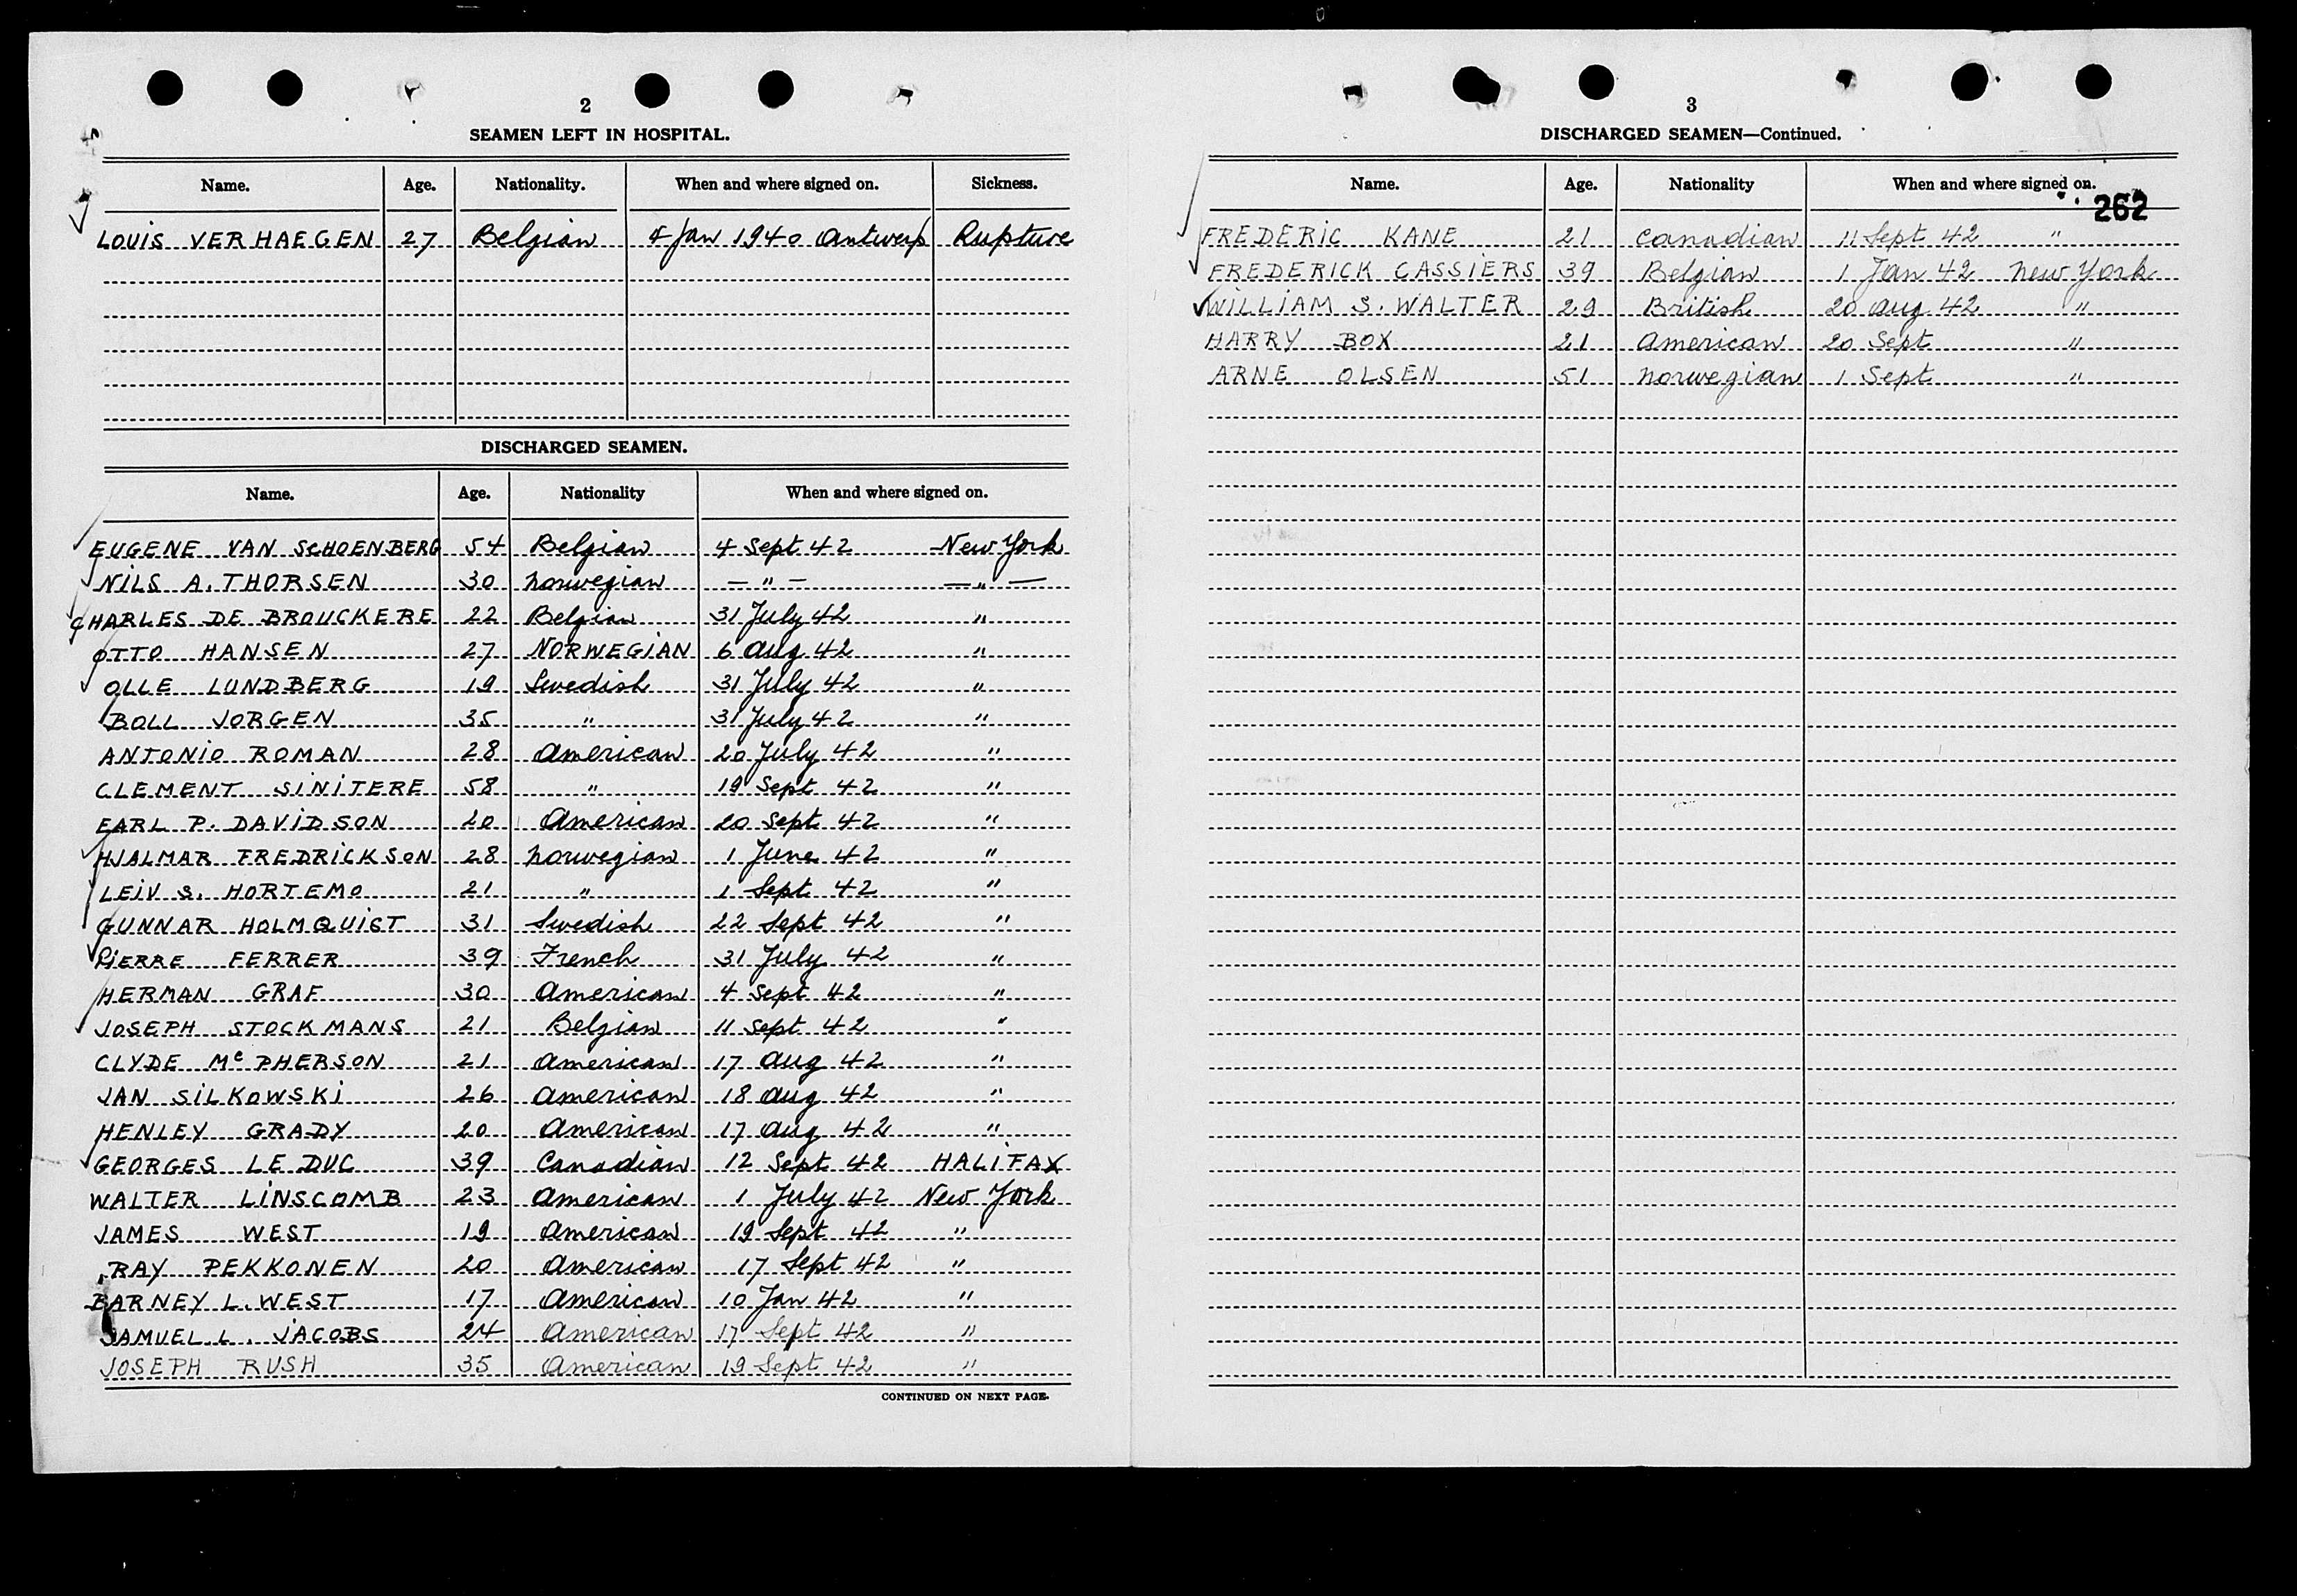 2
SEAMEN LEFT IN HOSPITAL.
Name. Age. Nationality. When and where signed on. Sickness.
LOUIS VERHAEGEN 27 Belgian 4 Jan 1940 Antwerp Rupture
DISCHARGED SEAMEN.
Name. Age. Nationality When and where signed on.
EUGENE VAN SCHOENBERG 54 Belgian 4 Sept 42 New York
NILS A. THORSEN 30 Norwegian — " — — " —
CHARLES DE BROUCKERE 22 Belgian 31 July 42 "
OTTO HANSEN 27 NORWEGIAN 6 Aug 42 "
OLLE LUNDBERG 19 Swedish 31 July 42 "
BOLL JORGEN 35 " 31 July 42 "
ANTONIO ROMAN 28 American 20 July 42 "
CLEMENT SINITERE 58 " 19 Sept 42 "
EARL P. DAVIDSON 20 American 20 Sept 42 "
HJALMAR FREDRICKSON 28 Norwegian 1 June 42 "
LEIV S. HORTEMO 21 " 1 Sept 42 "
GUNNAR HOLMQUIST 31 Swedish 22 Sept 42 "
PIERRE FERRER 39 French 31 July 42 "
HERMAN GRAF 30 American 4 Sept 42 "
JOSEPH STOCKMANS 21 Belgian 11 Sept 42 "
CLYDE McPHERSON 21 American 17 Aug 42 "
JAN SILKOWSKI 26 American 18 Aug 42 "
HENLEY GRADY 20 American 17 Aug 42 "
GEORGES LE DUC 39 Canadian 12 Sept 42 HALIFAX
WALTER LINSCOMB 23 American 1 July 42 New York
JAMES WEST 19 American 19 Sept 42 "
RAY PEKKONEN 20 American 17 Sept 42 "
BARNEY L. WEST 17 American 10 Jan 42 "
SAMUEL L. JACOBS 24 American 17 Sept 42 "
JOSEPH RUSH 35 American 19 Sept 42 "
CONTINUED ON NEXT PAGE.
3
DISCHARGED SEAMEN—Continued.
Name. Age. Nationality When and where signed on.
262
FREDERIC KANE 21 Canadian 11 Sept 42 "
FREDERICK CASSIERS 39 Belgian 1 Jan 42 New York
WILLIAM S. WALTER 29 British 20 Aug 42 "
HARRY BOX 21 American 20 Sept "
ARNE OLSEN 51 Norwegian 1 Sept "